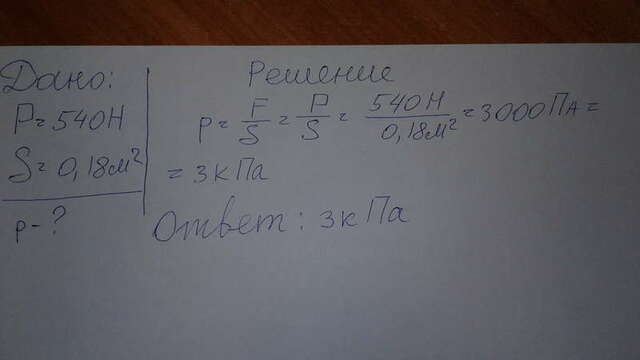 Дано:
P = 540Н
S = 0,18м²
p - ?
Решение
p = F/S = P/S = 540Н/0,18м² = 3000Па =
= 3кПа
Ответ: 3кПа